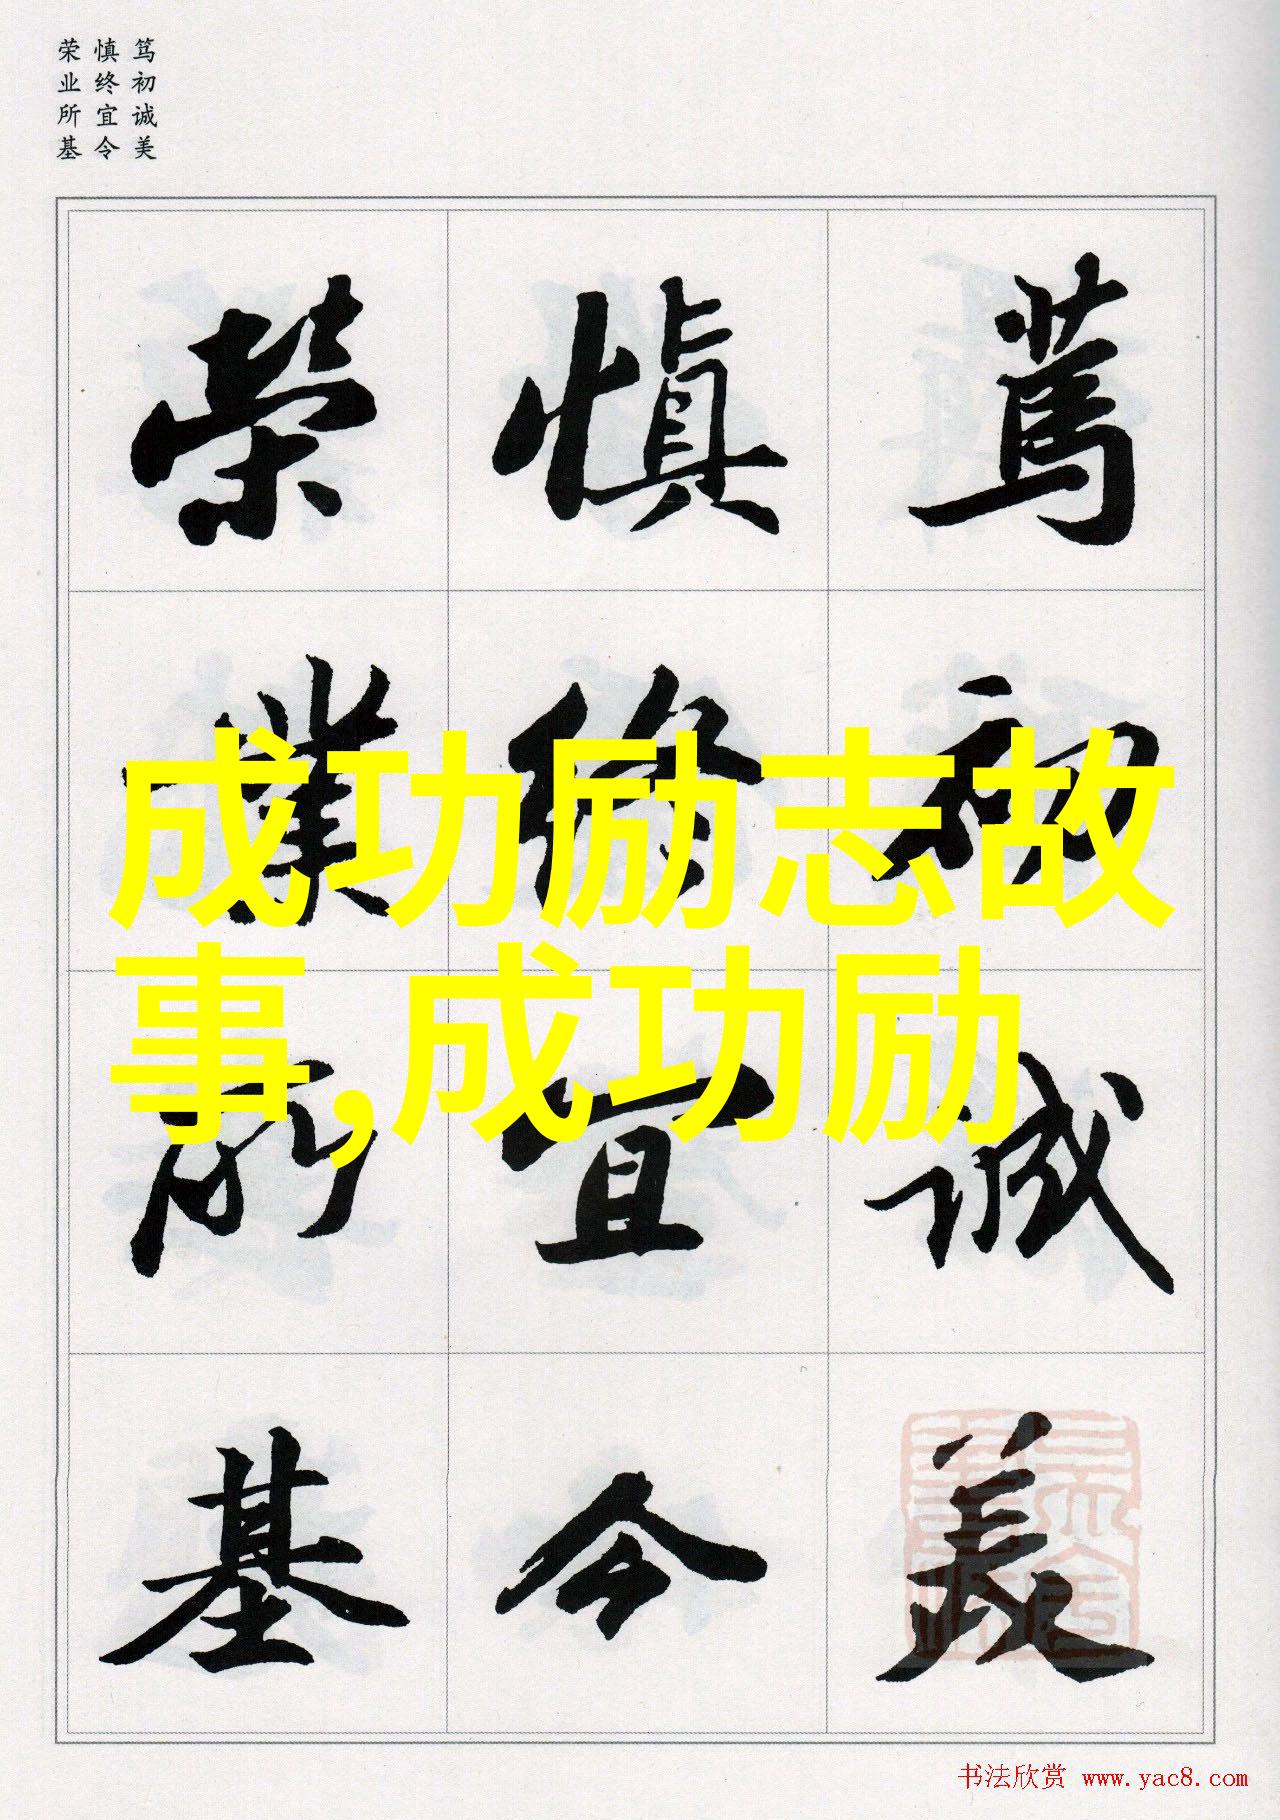 笃初诚美
慎终宜令
荣业所基
篤初誠美
慎終宜令
榮業所基
成功励志故
事,成功励
书法欣赏 www.yac8.com